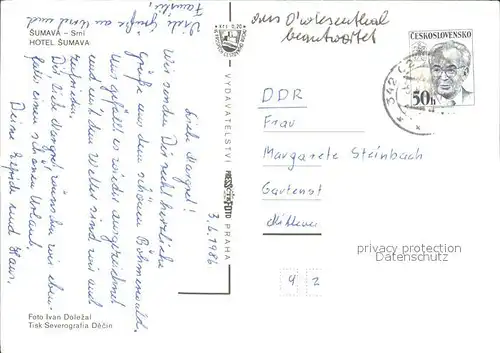 ŠUMAVA – Srní
HOTEL ŠUMAVA
3.6.1986
Liebe Margret!
Wir senden Dir recht herzliche
Grüße aus dem schönen Böhmerwald.
Uns gefällt es wieder ausgezeichnet
und mit dem Wetter sind wir auch
zufrieden.
Dir, liebe Margret, wünschen wir eben-
falls einen schönen Urlaub.
Deine Elfriede und Hans.
Viele Grüße an Horst und
Familie!
Foto Ivan Doležal
Tisk Severografia Děčín
VYDAVATELSTVÍ PRESSFOTO PRAHA
aus O'wiesenthal
beantwortet
ČESKOSLOVENSKO
50h
342
DDR
Frau
Margarete Steinbach
Gartenst
privacy protection
Datenschutz
4 2